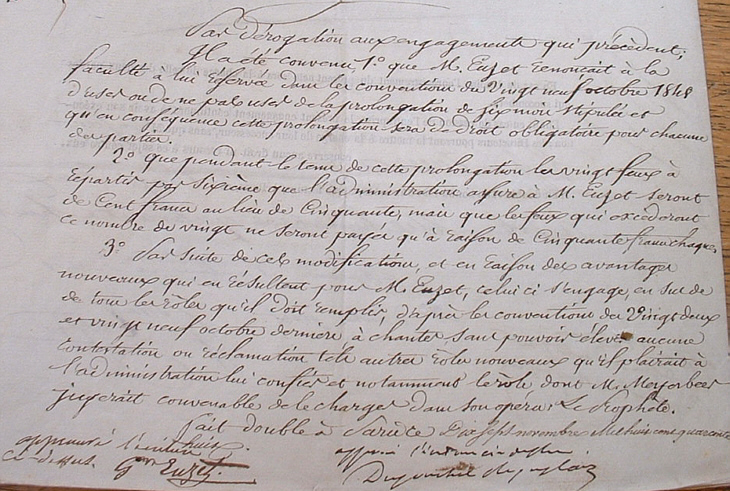 Par dérogation aux engagements qui précèdent,
Il a été convenu 1º que M. Euzet renonçait à la
faculté à lui réservée dans les conventions du Vingt neuf octobre 1848
d'user ou de ne pas user de la prolongation de six mois stipulée et
qu'en conséquence cette prolongation sera de droit obligatoire pour chacune
des parties.
2º que pendant le tems de cette prolongation les vingt feux à
répartir par sixième que l'administration assure à M. Euzet seront
de Cent francs au lieu de Cinquante, mais que les feux qui excéderont
ce nombre de vingt ne seront payés qu'à raison de Cinquante francs chaque,
3º Par suite de ces modifications, et en raison des avantages
nouveaux qui en résultent pour M. Euzet, celui ci s'engage, en sus de
de tous les rôles qu'il doit remplir, d'après les conventions des Vingt deux
et vingt neuf octobre derniers à chanter sans pouvoir élever aucune
Contestation ou réclamation tels autres rôles nouveaux qu'il plairait à
l'administration lui confier et notamment le rôle dont M. Meyerbeer
jugerait convenable de le charger dans son opéra, Le Prophète.
fait double à Paris ce Dix Sept novembre Mil huit cent quarante
huit.
approuvé l'écriture
ci-dessus.
Euzet
approuvé l'écriture ci dessus
Duponchel